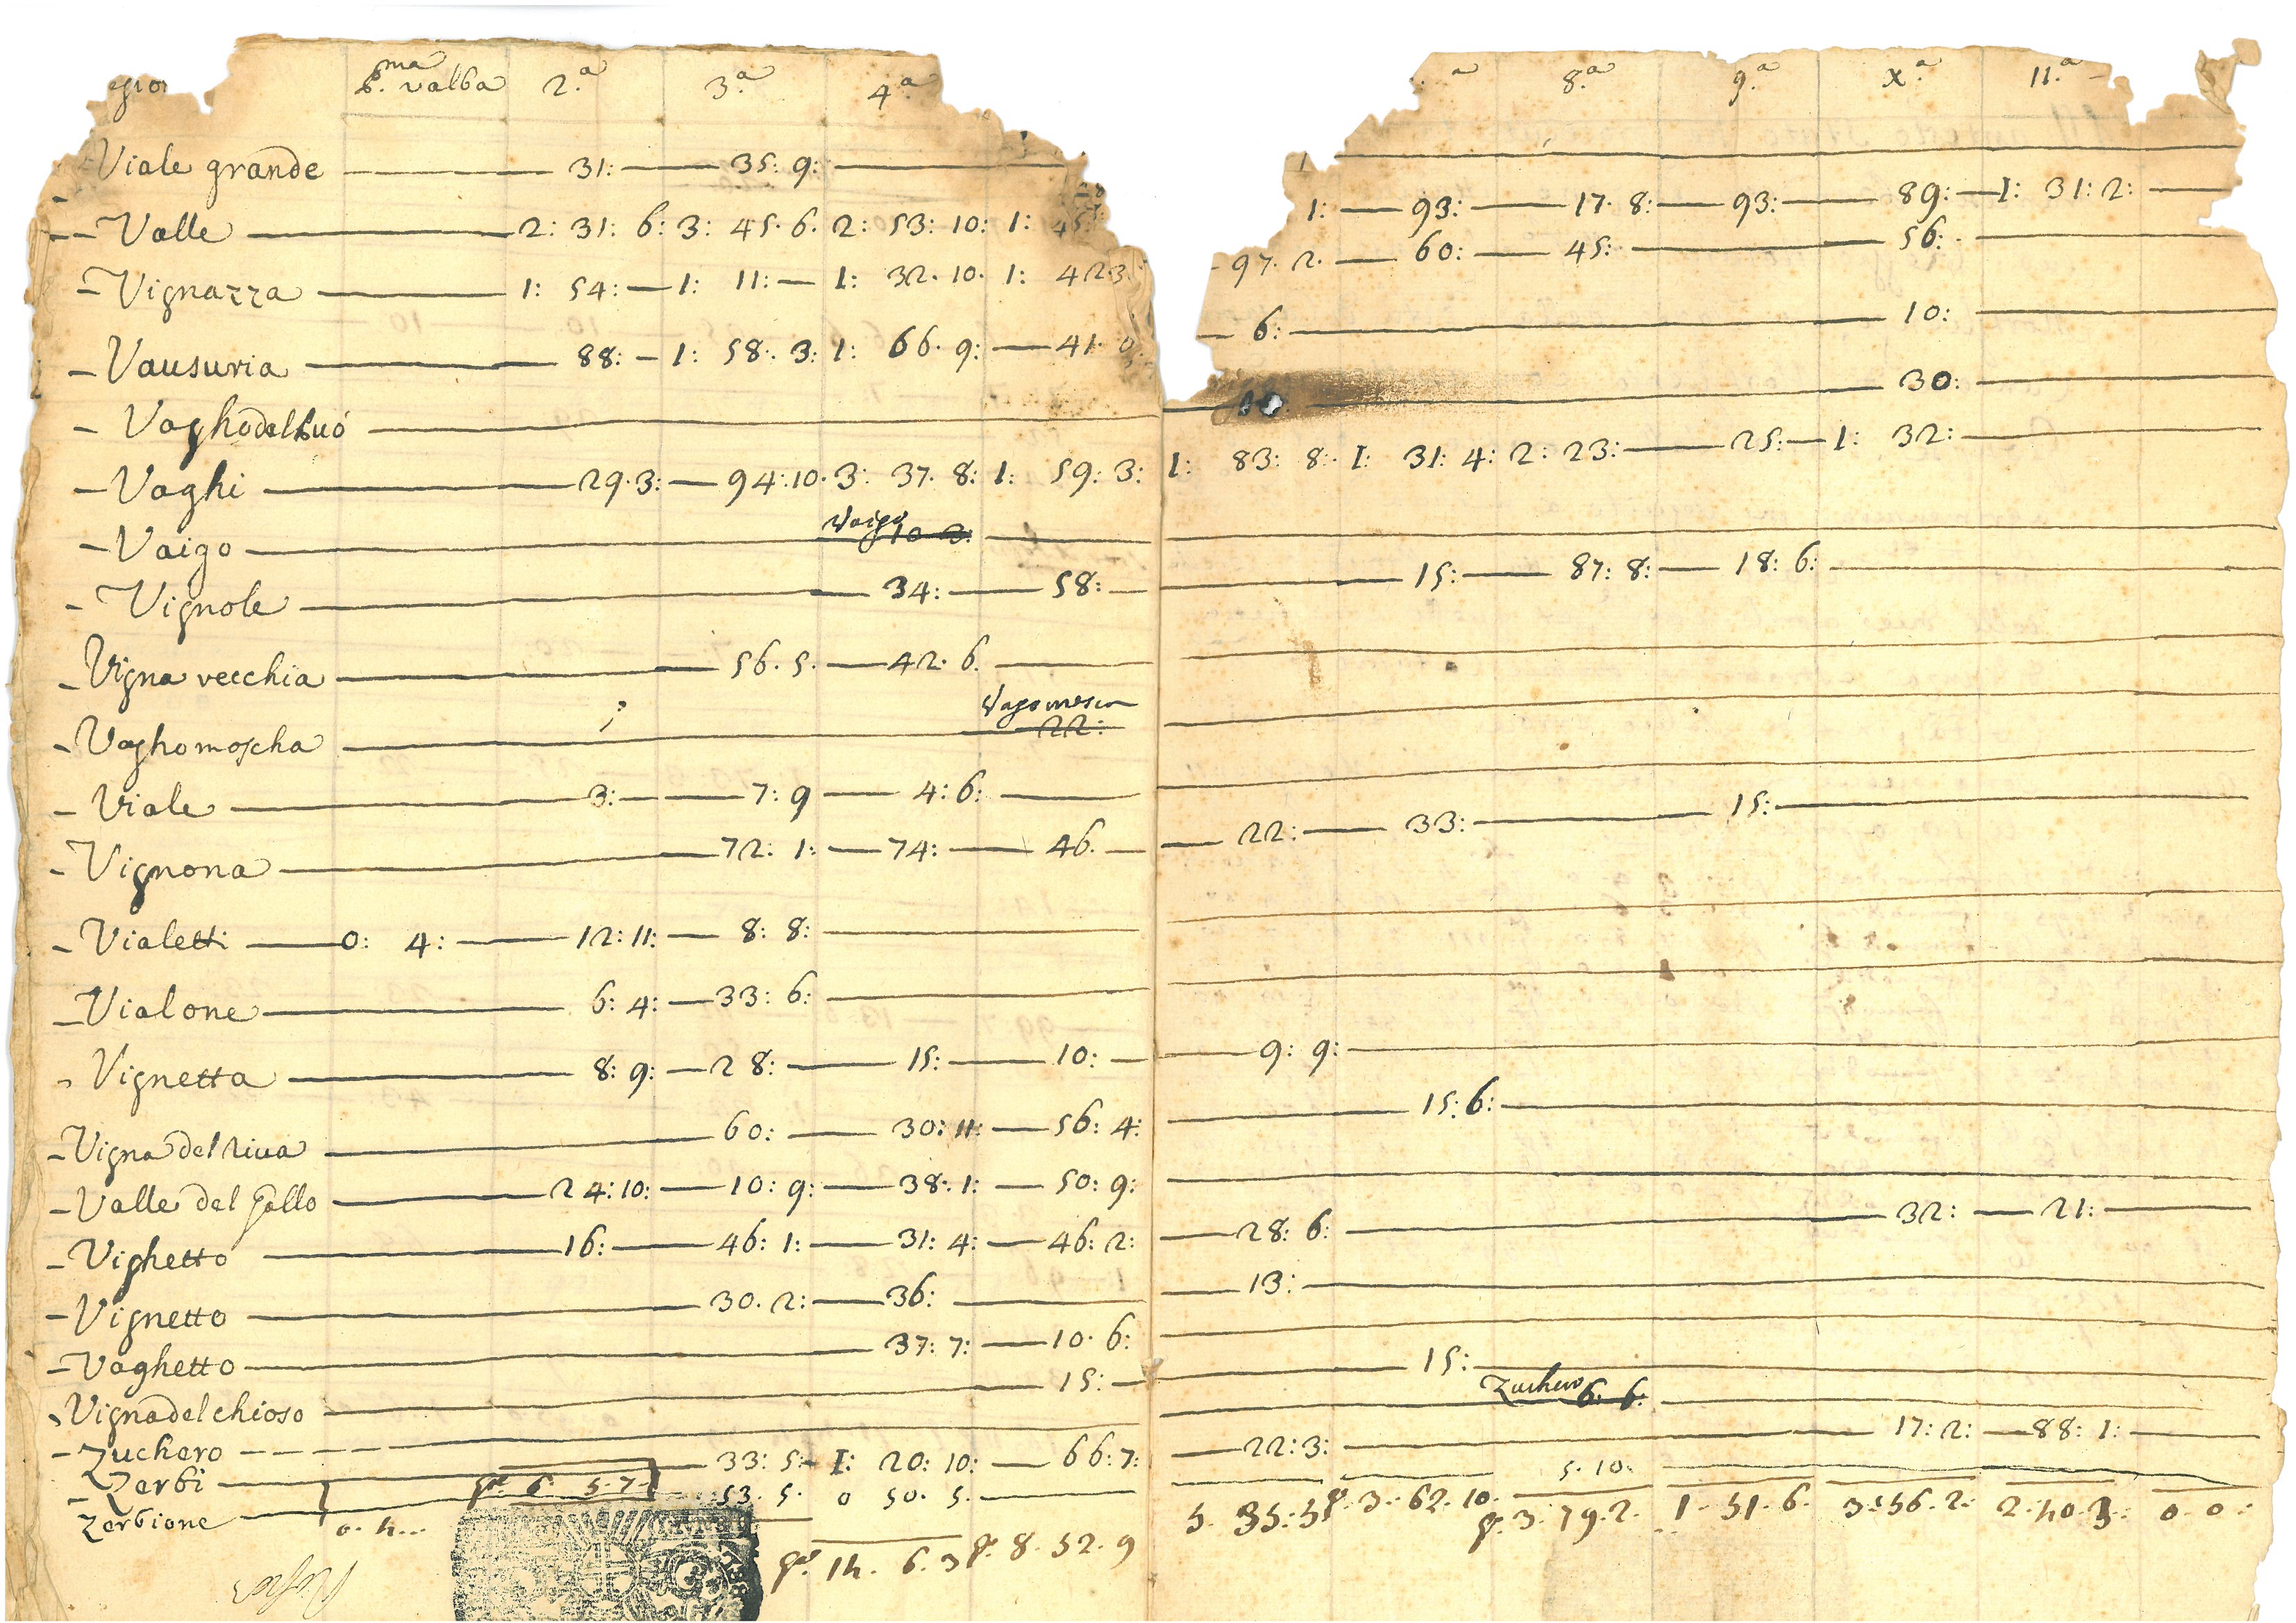 p.ma valba 2.a 3.a 4.a 8.a 9.a x.a 11.a
Viale grande 31: 35: 9:
- Valle 2: 31: 6: 3: 45. 6. 2: 53: 10: 1: 45: 1: 93: 17. 8: 93: 89: 1: 31: 2:
- Vignazza 1: 54: 1: 11: 1: 32. 10. 1: 42. 3. 97. 2. 60: 45: 56:
- Vausuria 88: 1: 58: 3: 1: 66. 9: 41. 6: 10:
- Vaghodelbuó 30:
- Vaghi 29. 3: 94: 10. 3: 37. 8: 1: 59: 3: 1: 83: 8: 1: 31: 4: 2: 23: 25: 1: 32:
- Vaigo Vaigo 10 3:
- Vignole 34: 58: 15: 87: 8: 18: 6:
- Vigna vecchia 56. 5. 42. 6.
- Vaghomoscha 22:
- Viale 3: 7: 9 4: 6:
- Vignona 72: 1: 74: 46. 22: 33: 15:
- Vialetti 0: 4: 12: 11: 8: 8:
- Vialone 6: 4: 33: 6:
- Vignetta 8: 9: 28: 15: 10: 9: 9:
- Vigna del riua 60: 30: 11: 56: 4: 15: 6:
- Valle del gallo 24: 10: 10: 9: 38: 1: 50: 9:
- Vighetto 16: 46: 1: 31: 4: 46: 2: 28: 6: 32: 21:
- Vignetto 30. 2: 36: 13:
- Vaghetto 37: 7: 10. 6:
- Vigna del chioso 15: 15:
- Zuchero Zuchero 6: 6:
- Zerbi 33: 5: 1: 20: 10: 66: 7: 22: 3: 17: 2: 88: 1:
Zerbione 53. 5. 0 50. 5. 5. 10.
6. 5. 7 5. 35: 5 3. 62. 10. 3. 79. 2. 1. 51. 6. 3: 56. 2. 2. 40. 3. 0. 0.
0. 4. 14. 6. 3 8. 52. 9